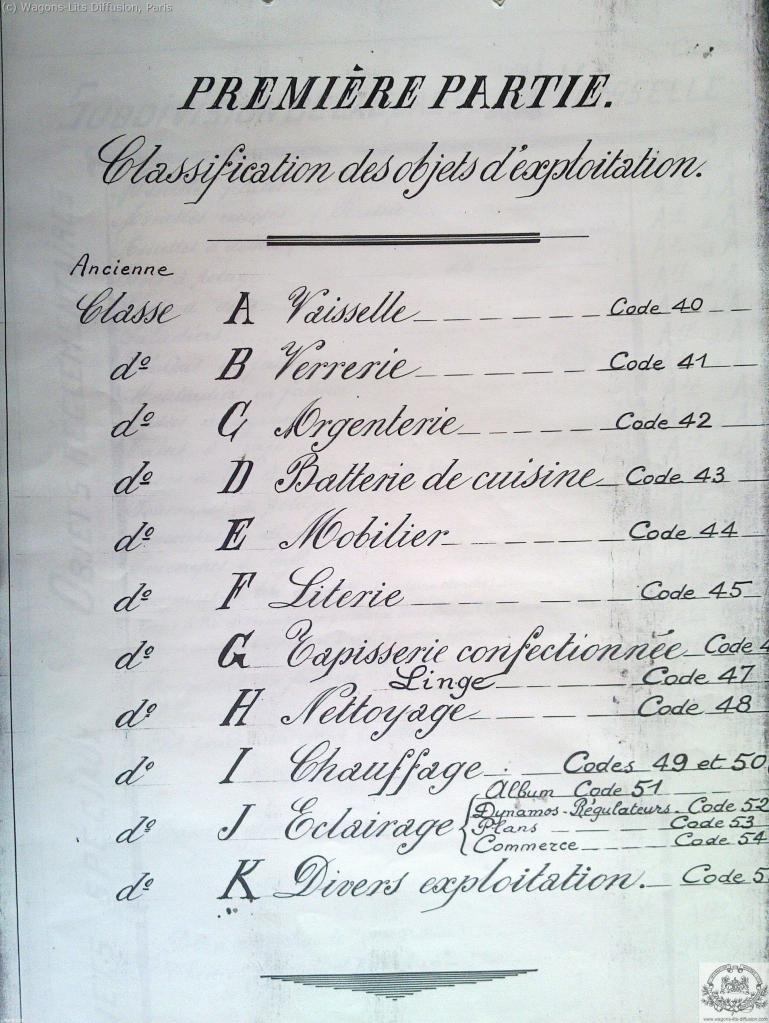 (c) Wagons-Lits Diffusion, Paris
PREMIÈRE PARTIE.
Classification des objets d'exploitation.
Ancienne
Classe A Vaisselle Code 40
dº B Verrerie Code 41
dº C Argenterie Code 42
dº D Batterie de cuisine Code 43
dº E Mobilier Code 44
dº F Literie Code 45
dº G Tapisserie confectionnée Code 4
Linge Code 47
dº H Nettoyage Code 48
dº I Chauffage Codes 49 et 50
Album Code 51
Dynamos-Régulateurs Code 52
dº J Eclairage Plans Code 53
Commerce Code 54
dº K Divers exploitation. Code 5
www.wagons-lits-diffusion.com